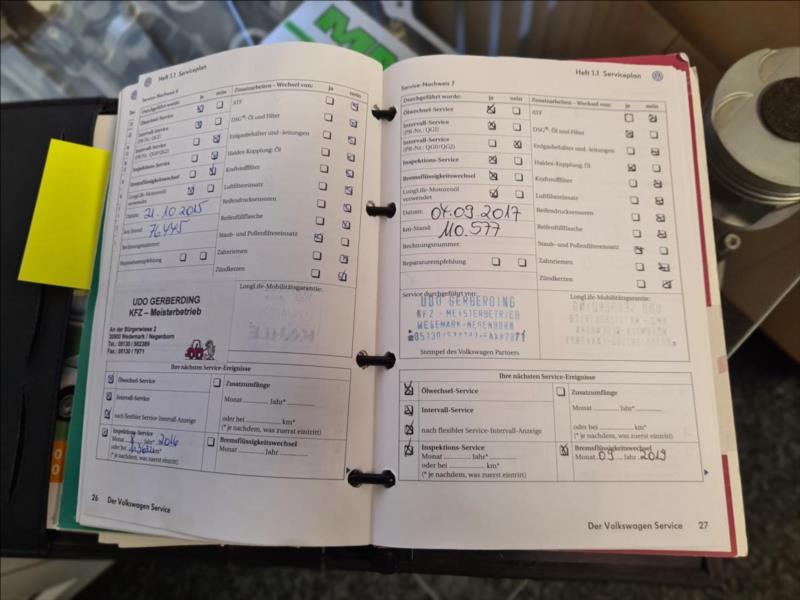 Heft 1.1 Serviceplan
Service-Nachweis 6
Durchgeführt wurde: ja nein
Ölwechsel-Service
Intervall-Service
(PR-Nr.: QG1)
Intervall-Service
(PR-Nr.: QG0/QG2)
Inspektions-Service
Bremsflüssigkeitswechsel
LongLife-Motorenöl
verwendet
Datum: 21.10.2015
km-Stand: 76.445
Rechnungsnummer:
Reparaturempfehlung
Zusatzarbeiten - Wechsel von: ja nein
ATF
DSG®: Öl und Filter
Erdgasbehälter und -leitungen
Haldex-Kupplung: Öl
Kraftstofffilter
Luftfiltereinsatz
Reifendrucksensoren
Reifenfüllflasche
Staub- und Pollenfiltereinsatz
Zahnriemen
Zündkerzen
UDO GERBERDING
KFZ – Meisterbetrieb
An der Bürgerwiese 2
30900 Wedemark / Negenborn
Tel.: 05130 / 582389
Fax: 05130 / 7971
LongLife-Mobilitätsgarantie:
Ihre nächsten Service-Ereignisse
Ölwechsel-Service
Intervall-Service
nach flexibler Service-Intervall-Anzeige
Inspektions-Service
Monat Jahr* 2016
oder bei km*
(* je nachdem, was zuerst eintritt)
Zusatzumfänge
Monat Jahr*
oder bei km*
(* je nachdem, was zuerst eintritt)
Bremsflüssigkeitswechsel
Monat Jahr
26 Der Volkswagen Service
Heft 1.1 Serviceplan
Service-Nachweis 7
Durchgeführt wurde: ja nein
Ölwechsel-Service
Intervall-Service
(PR-Nr.: QG1)
Intervall-Service
(PR-Nr.: QG0/QG2)
Inspektions-Service
Bremsflüssigkeitswechsel
LongLife-Motorenöl
verwendet
Datum: 04.09.2017
km-Stand: 110.577
Rechnungsnummer:
Reparaturempfehlung
Zusatzarbeiten - Wechsel von: ja nein
ATF
DSG®: Öl und Filter
Erdgasbehälter und -leitungen
Haldex-Kupplung: Öl
Kraftstofffilter
Luftfiltereinsatz
Reifendrucksensoren
Reifenfüllflasche
Staub- und Pollenfiltereinsatz
Zahnriemen
Zündkerzen
Service durchgeführt von:
UDO GERBERDING
KFZ - MEISTERBETRIEB
WEDEMARK-NEGENBORN
Stempel des Volkswagen Partners
LongLife-Mobilitätsgarantie:
Ihre nächsten Service-Ereignisse
Ölwechsel-Service
Intervall-Service
nach flexibler Service-Intervall-Anzeige
Inspektions-Service
Monat Jahr*
oder bei km*
(* je nachdem, was zuerst eintritt)
Zusatzumfänge
Monat Jahr*
oder bei km*
(* je nachdem, was zuerst eintritt)
Bremsflüssigkeitswechsel
Monat 09 Jahr 2019
Der Volkswagen Service 27